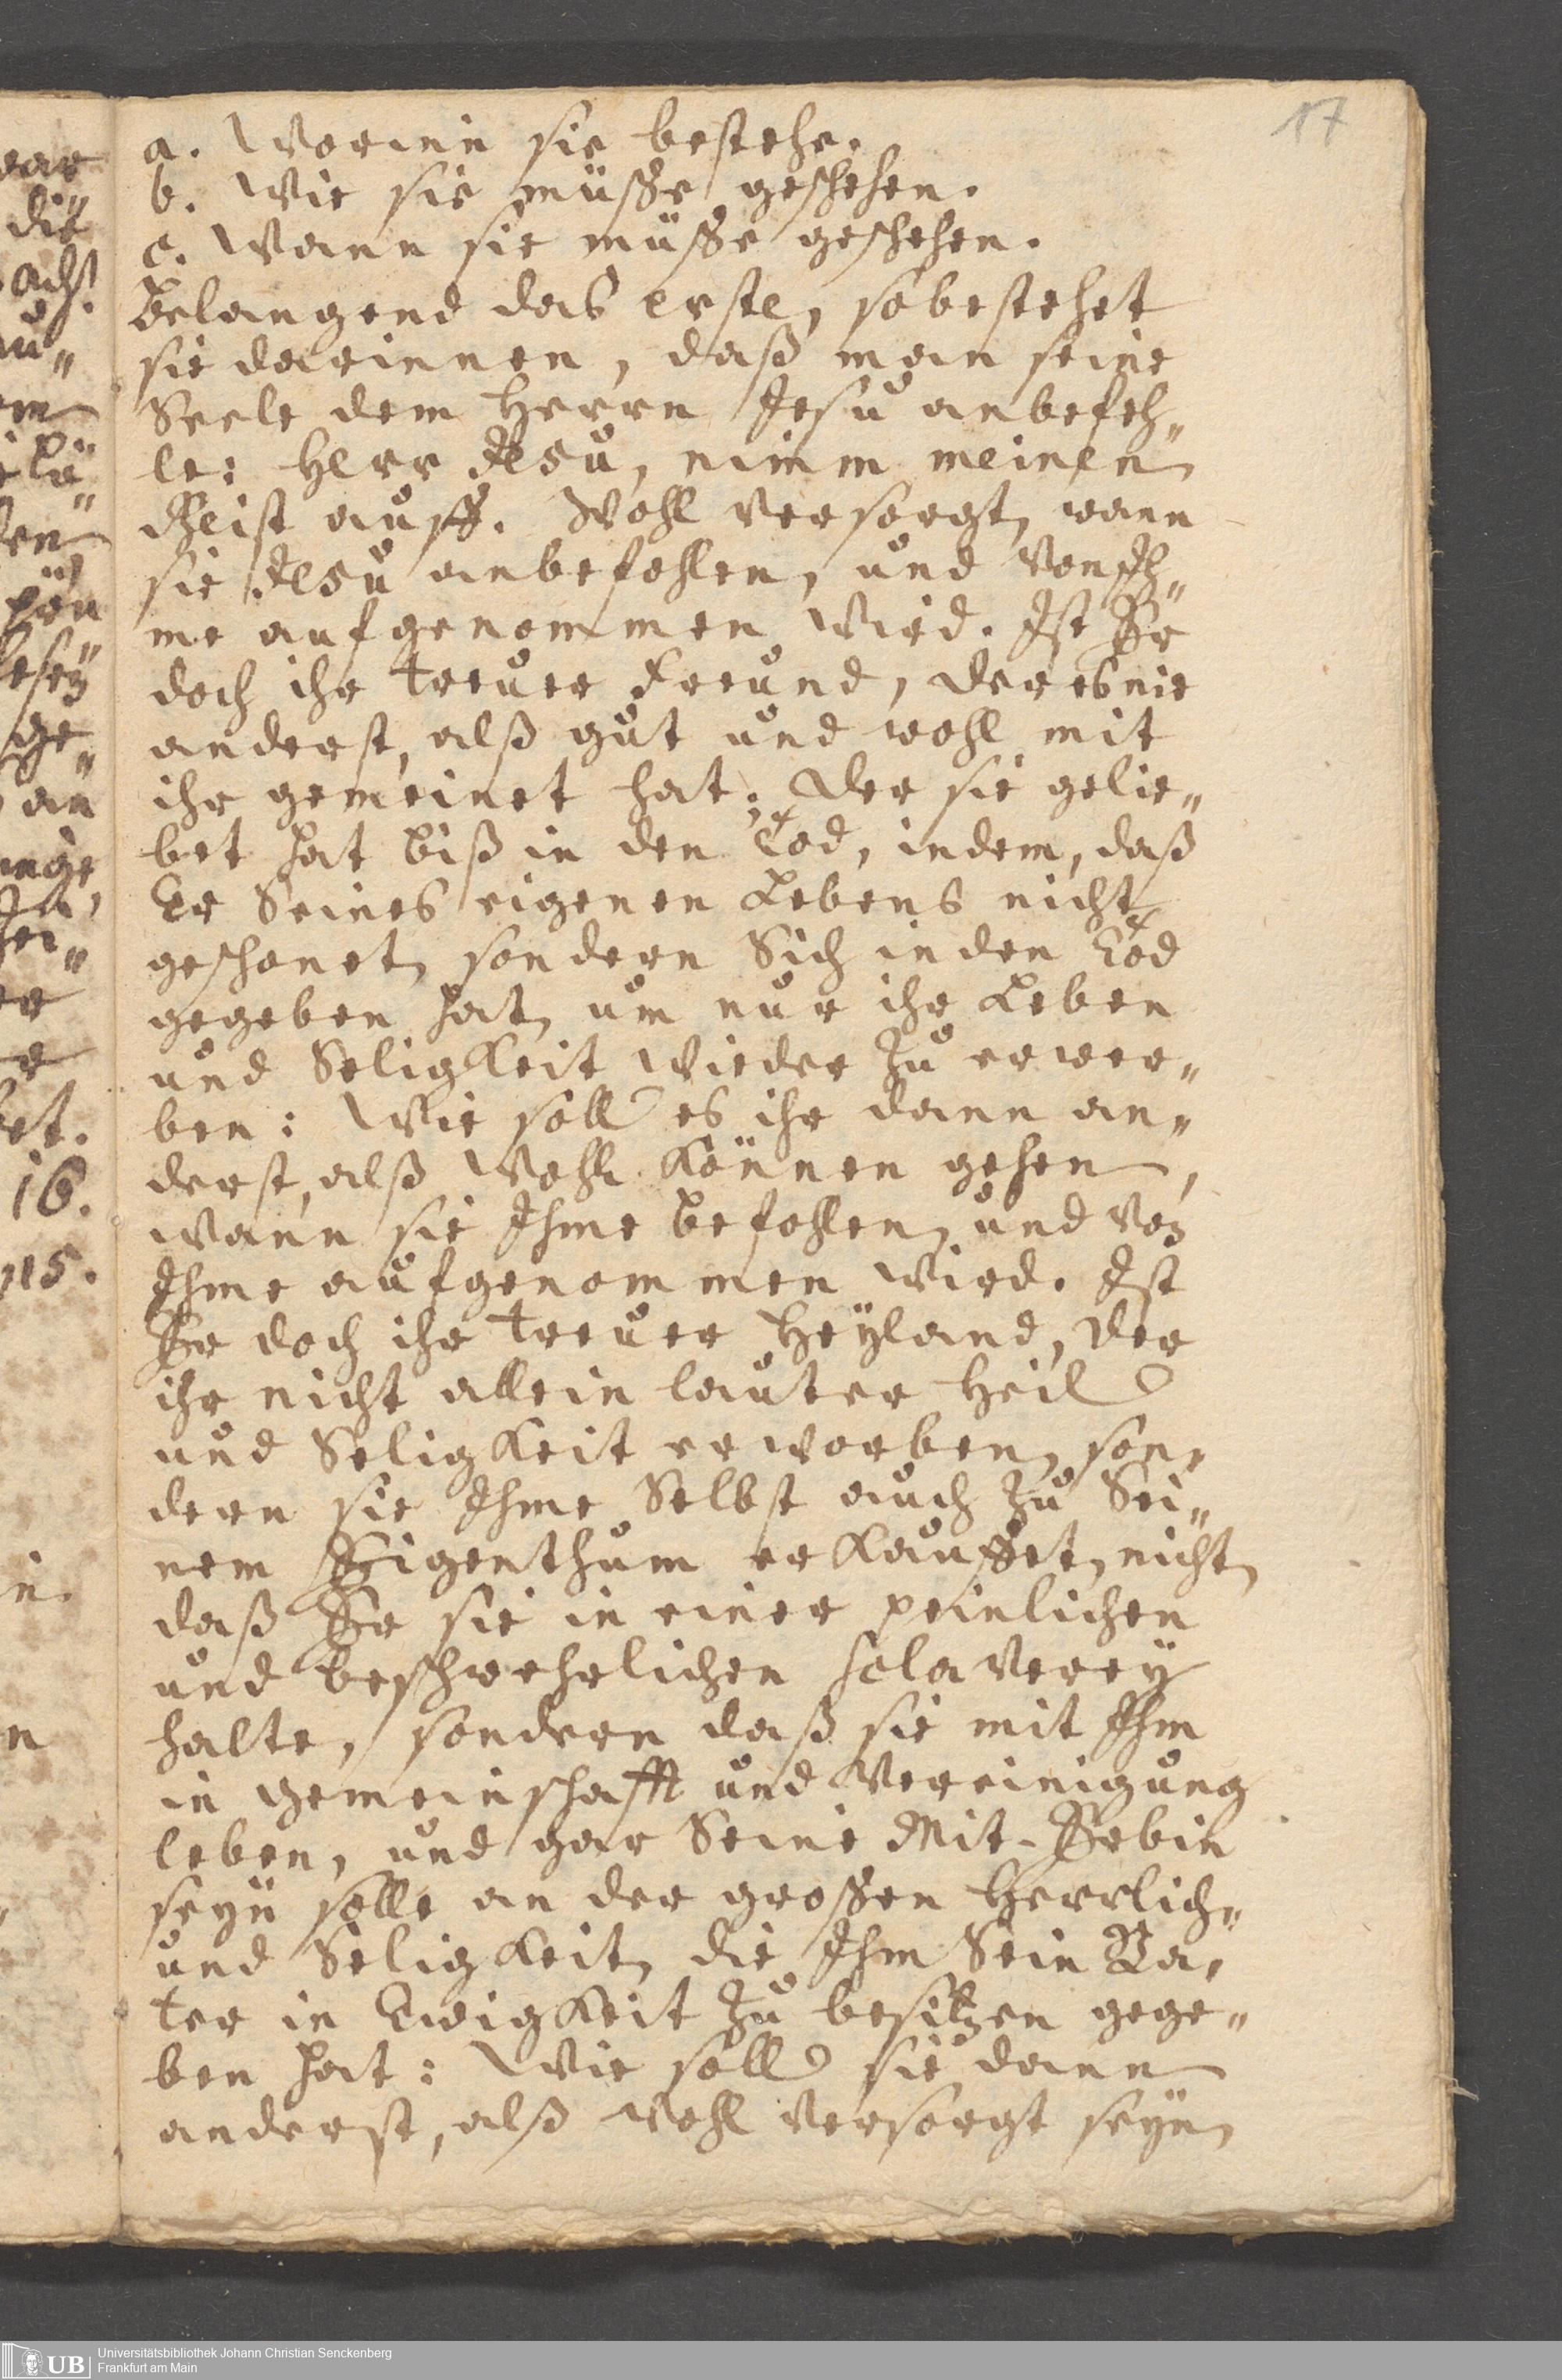 17
a. Worinn sie bestehe.
b. Wie sie müsse geschehen.
c. Wann sie müsse geschehen.
Belangend das erste, so bestehet
sie darinnen, daß man seine
Seele dem Herrn Jesu anbefeh„
le: Herr Jesu, nimm meinen
Geist auff. Wohl versorgt, wann
sie Jesu anbefohlen, und von Ih„
me aufgenommen wird. Ist Er
doch ihr treuer Freund, der es nie
anderst, alß gut und wohl mit
ihr gemeinet hat; der sie gelie„
bet hat biß in den Tod, indem, daß
Er Seines eigenen Lebens nicht
geschonet, sondern Sich in den Tod
gegeben hat, um nur ihr Leben
und Seligkeit wieder zu erwer„
ben: Wie soll es ihr dann an„
derst, alß wohl können gehen,
wann sie Ihme befohlen, und von
Ihme aufgenommen wird. Ist
Er doch ihr treuer Heyland, der
ihr nicht allein lauter Heil
und Seligkeit erworben, son„
dern sie Ihme Selbst auch zu Sei„
nem Eigenthum erkauffet, nicht,
daß Er sie in einer peinlichen
und beschwehrlichen sclaverey
halte, sondern daß sie mit Ihm
in gemeinschafft und Vereinigung
leben, und gar Seine Mit-Erbin
seyn solle an der grossen Herrlich„
und Seligkeit, die Ihm Sein Va„
ter in Ewigkeit zu besitzen gege„
ben hat: Wie soll sie dann
anderst, alß wohl versorgt seyn,
UB
Universitätsbibliothek Johann Christian Senckenberg
Frankfurt am Main